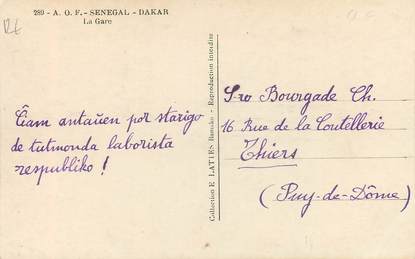 289 - A. O. F. - SENEGAL - DAKAR
La Gare
Ĉiam antaŭen por starigo
de tutmonda laborista
respubliko !
Collection E. LATTES Bamako - Reproduction interdite
S-ro Bourgade Ch.
16 Rue de la Coutellerie
Thiers
(Puy-de-Dôme)